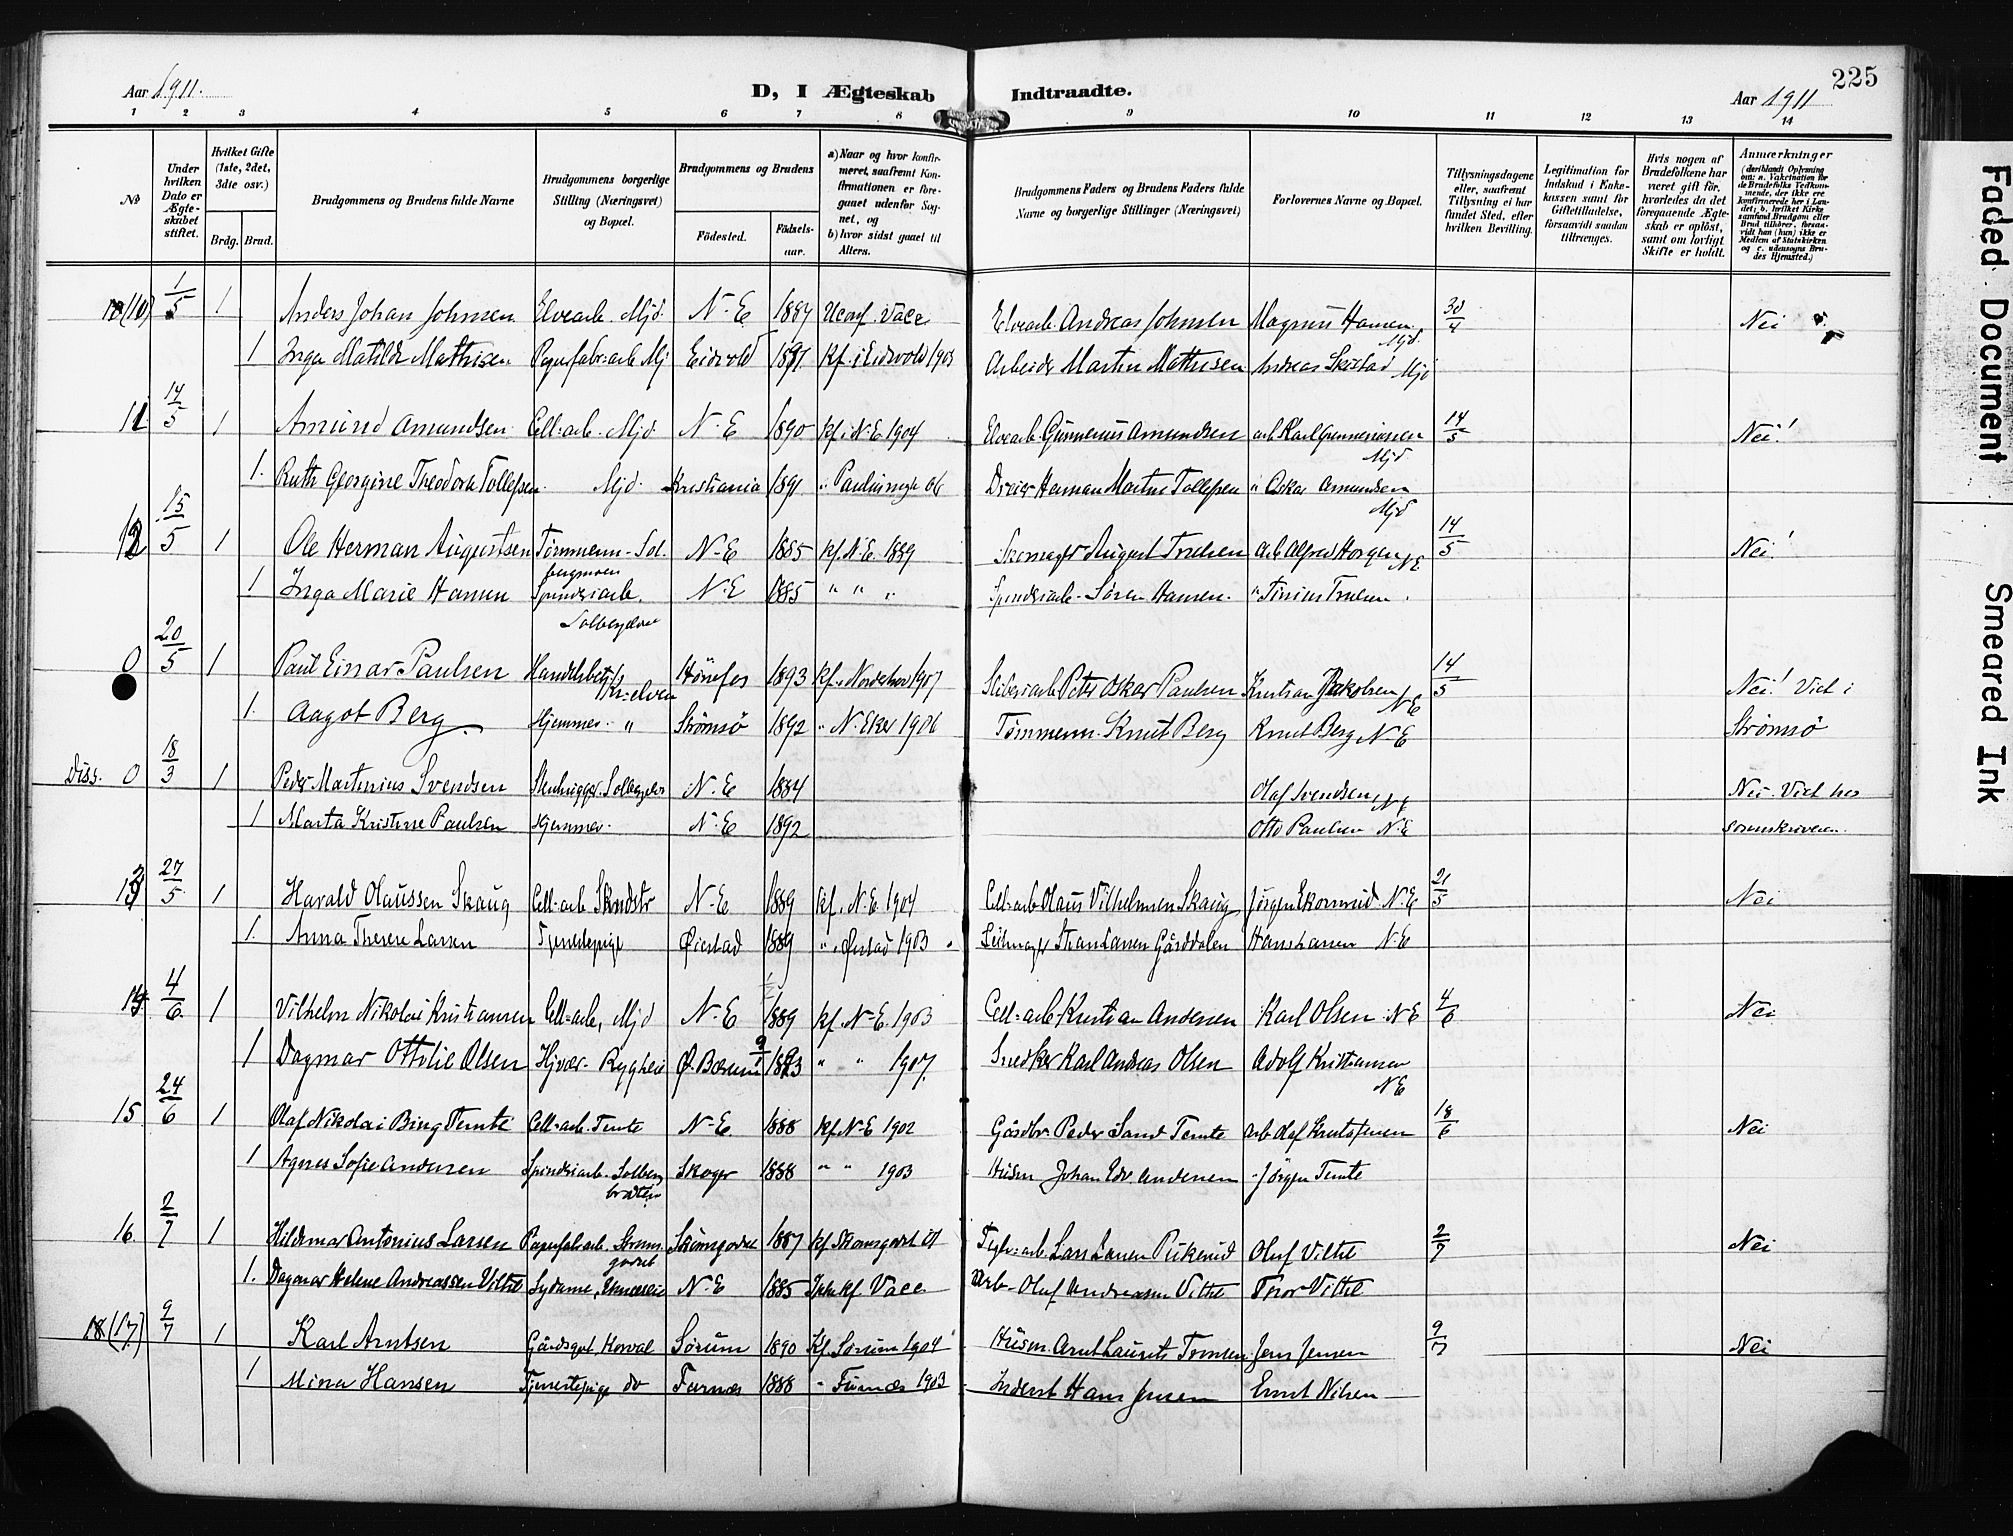 Aar 1911. D, I Ægteskab Indtraadte. Aar 1911
225
1 2 3 4 5 6 7 8 9 10 11 12 13 14
No
Under hvilken Dato er Ægteskabet stiftet.
Hvilket Gifte (1ste, 2det, 3die osv.)
Brdg. Brud.
Brudgommens og Brudens fulde Navne
Brudgommens borgerlige Stilling (Næringsvei) og Bopæl.
Brudgommens og Brudens
Fødested. Fødselsaar.
a) Naar og hvor konfirmeret, saafremt Konfirmationen er foregaaet udenfor Sognet, og
b) hvor sidst gaaet til Alters.
Brudgommens Faders og Brudens Faders fulde Navne og borgerlige Stillinger (Næringsvei)
Forlovernes Navne og Bopæl.
Tillysningsdagene eller, saafremt Tillysning ei har fundet Sted, efter hvilken Bevilling.
Legitimation for Indskud i Enkekassen samt for Giftetilladelse, forsaavidt saadan tiltrænges.
Hvis nogen af Brudefolkene har været gift før, hvorledes da det foregaaende Ægteskab er opløst, samt om lovligt Skifte er holdt.
Anmærkninger
(deriblandt Oplysning om: a. Vakcination for de Brudefolks Vedkommende, der ikke ere konfirmerede her i Landet; b. hvilket Kirkesamfund Brudgom eller Brud tilhører, forsaavidt han (hun) ikke er Medlem af Statskirken og c. udensogns Brudes Hjemsted.)
(10) 1/5 1 Anders Johan Johnsen Elvearb. Mjd. N-E 1889 Uconf. Vacc. Elvearb. Andreas Johnsen Magnus Hansen Mjd. 30/4 Nei
1 Inga Matilde Mathisen Papirfabr.arb Mj Eidsvold 1891 kf. i Eidsvold 1903 Arbeider Martin Mathisen Andreas Skistad Mjd
11 14/5 1 Amund Amundsen Cell.-arb. Mjd. N-E 1890 kf. i N.E. 1904 Elvearb. Gunnerius Amundsen arb Karl Gunneriussen Mjd 14/5 Nei!
1. Ruth Georgine Theodora Tollefsen Mjd. Kristiania 1891 Dreier Herman Martin Tollefsen " Oskar Amundsen Mjd
12 15/5 1 Ole Herman Augustsen Tømmerm-Solbergmoen N-E 1885 kf. N.E. 1899 Skomager August Truelsen arb Alfred Horgen NE 14/5 Nei!
1 Inga Marie Hansen Spinderiarb. Solbergelven N-E 1885 " " " Spinderiarb-Søren Hansen.
0 20/5 1 Paul Einar Paulsen Hønefos 1893 1907 Peter Oskar Paulsen Kristian Jakobsen NE 14/5 Nei! Viet i
1. Aagot Berg. Hjemmev. " Strømsø 1892 " N. Eker 1906 Tømmerm. Knut Berg Knut Berg N E Strømsø
Diss. 0 18/3 1 Peder Martinius Svendsen Stenhugger. Solbergelv N.E 1884 Olaf Svendsen N.E Nei. Viet hos
1 Marta Kristine Paulsen Hjemmev. N.E 1892 Otto Paulsen N.E sorenskriveren.
13 27/5 1 Harald Olaussen Skaug Cell-arb N-E 1889 kf. N.E. 1904 Cell-arb Olaus Vilhelmsen Skaug Jørgen N.E 21/5 Nei
1. Anna Therese Larsen Tjenestepige Øiestad 1889 " Øiestad 1903 Hans Larsen N.E
14 4/6 1 Vilhelm Nikolai Kristiansen Cell=arb, Mjd N-E 1889 kf. N-E. 1903 Cell=arb Kristian Andersen Karl Olsen N E 4/6 Nei
1 Dagmar Ottilie Olsen Hjvær. Ø. Bærum 9/1 1893 " " 1907 Snedker Karl Andreas Olsen Adolf Kristiansen NE
15 24/6 1 Olaf Nikolai Bing Temte Cell-arb. Temte N-E. 1888 kf. N-E 1902 Gårdbr. Peder Sand Temte arb Olaf 18/6 Nei
1 Agnes Sofie Andersen Spinderiarb. Skoger 1888 " " 1903 Husm Johan Edv. Andersen " Jørgen Temte
16 2/7 1 Hildemar Antonius Larsen Papirfabarb. Strømsgodset Skomsgodset 1887 Lars Larsen Pukerud Oluf Viltil 2/7 Nei
1. Dagmar Helene Andreassen Viltil Sydame, N-E 1885 Ikke kf. Vacc. Arb- Oluf Andreassen Viltil Thor Viltil
18 (17) 9/7 1 Karl Arntsen Gårdsgut, Horval Sørum 1890 Kf. Sørum 1904 Husm. Arnt Laurits Tomsen Jens Jensen 9/7 Nei
1 Mina Hansen Tjenestepige do Furnes 1888 " Furnæs 1903 Inderst Hans Jensen Ernst Nilsen
Faded Document
Smeared Ink